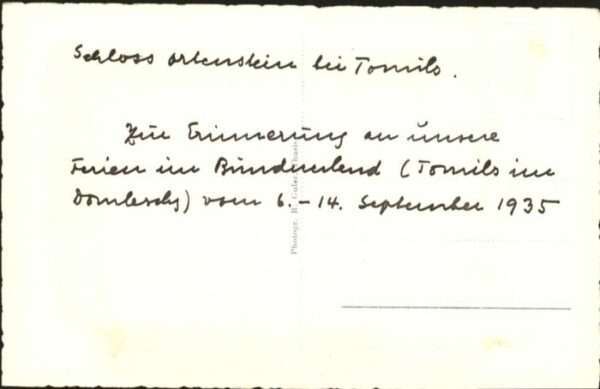 Schloss Ortenstein bei Tomils.
Zur Erinnerung an unsere
Ferien im Bündnerland (Tomils im
Domleschg) vom 6.-14. September 1935
Photogr.